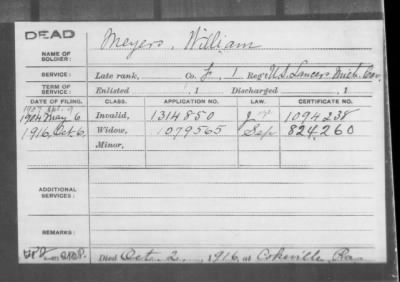 DEAD
NAME OF SOLDIER: Meyers, William
SERVICE: Late rank, Co. F, 1 Reg't U.S. Lancers Mich. Cav.
TERM OF SERVICE: Enlisted , 1 Discharged , 1
DATE OF FILING. CLASS. APPLICATION NO. LAW. CERTIFICATE NO.
1907
1904 May 6. Invalid, 1314850 1094238
1916, Oct. 6. Widow, 1079565 Sep 824,260
Minor,
ADDITIONAL SERVICES:
REMARKS:
Died Oct. 2, 1916, at Cokeville, Pa.